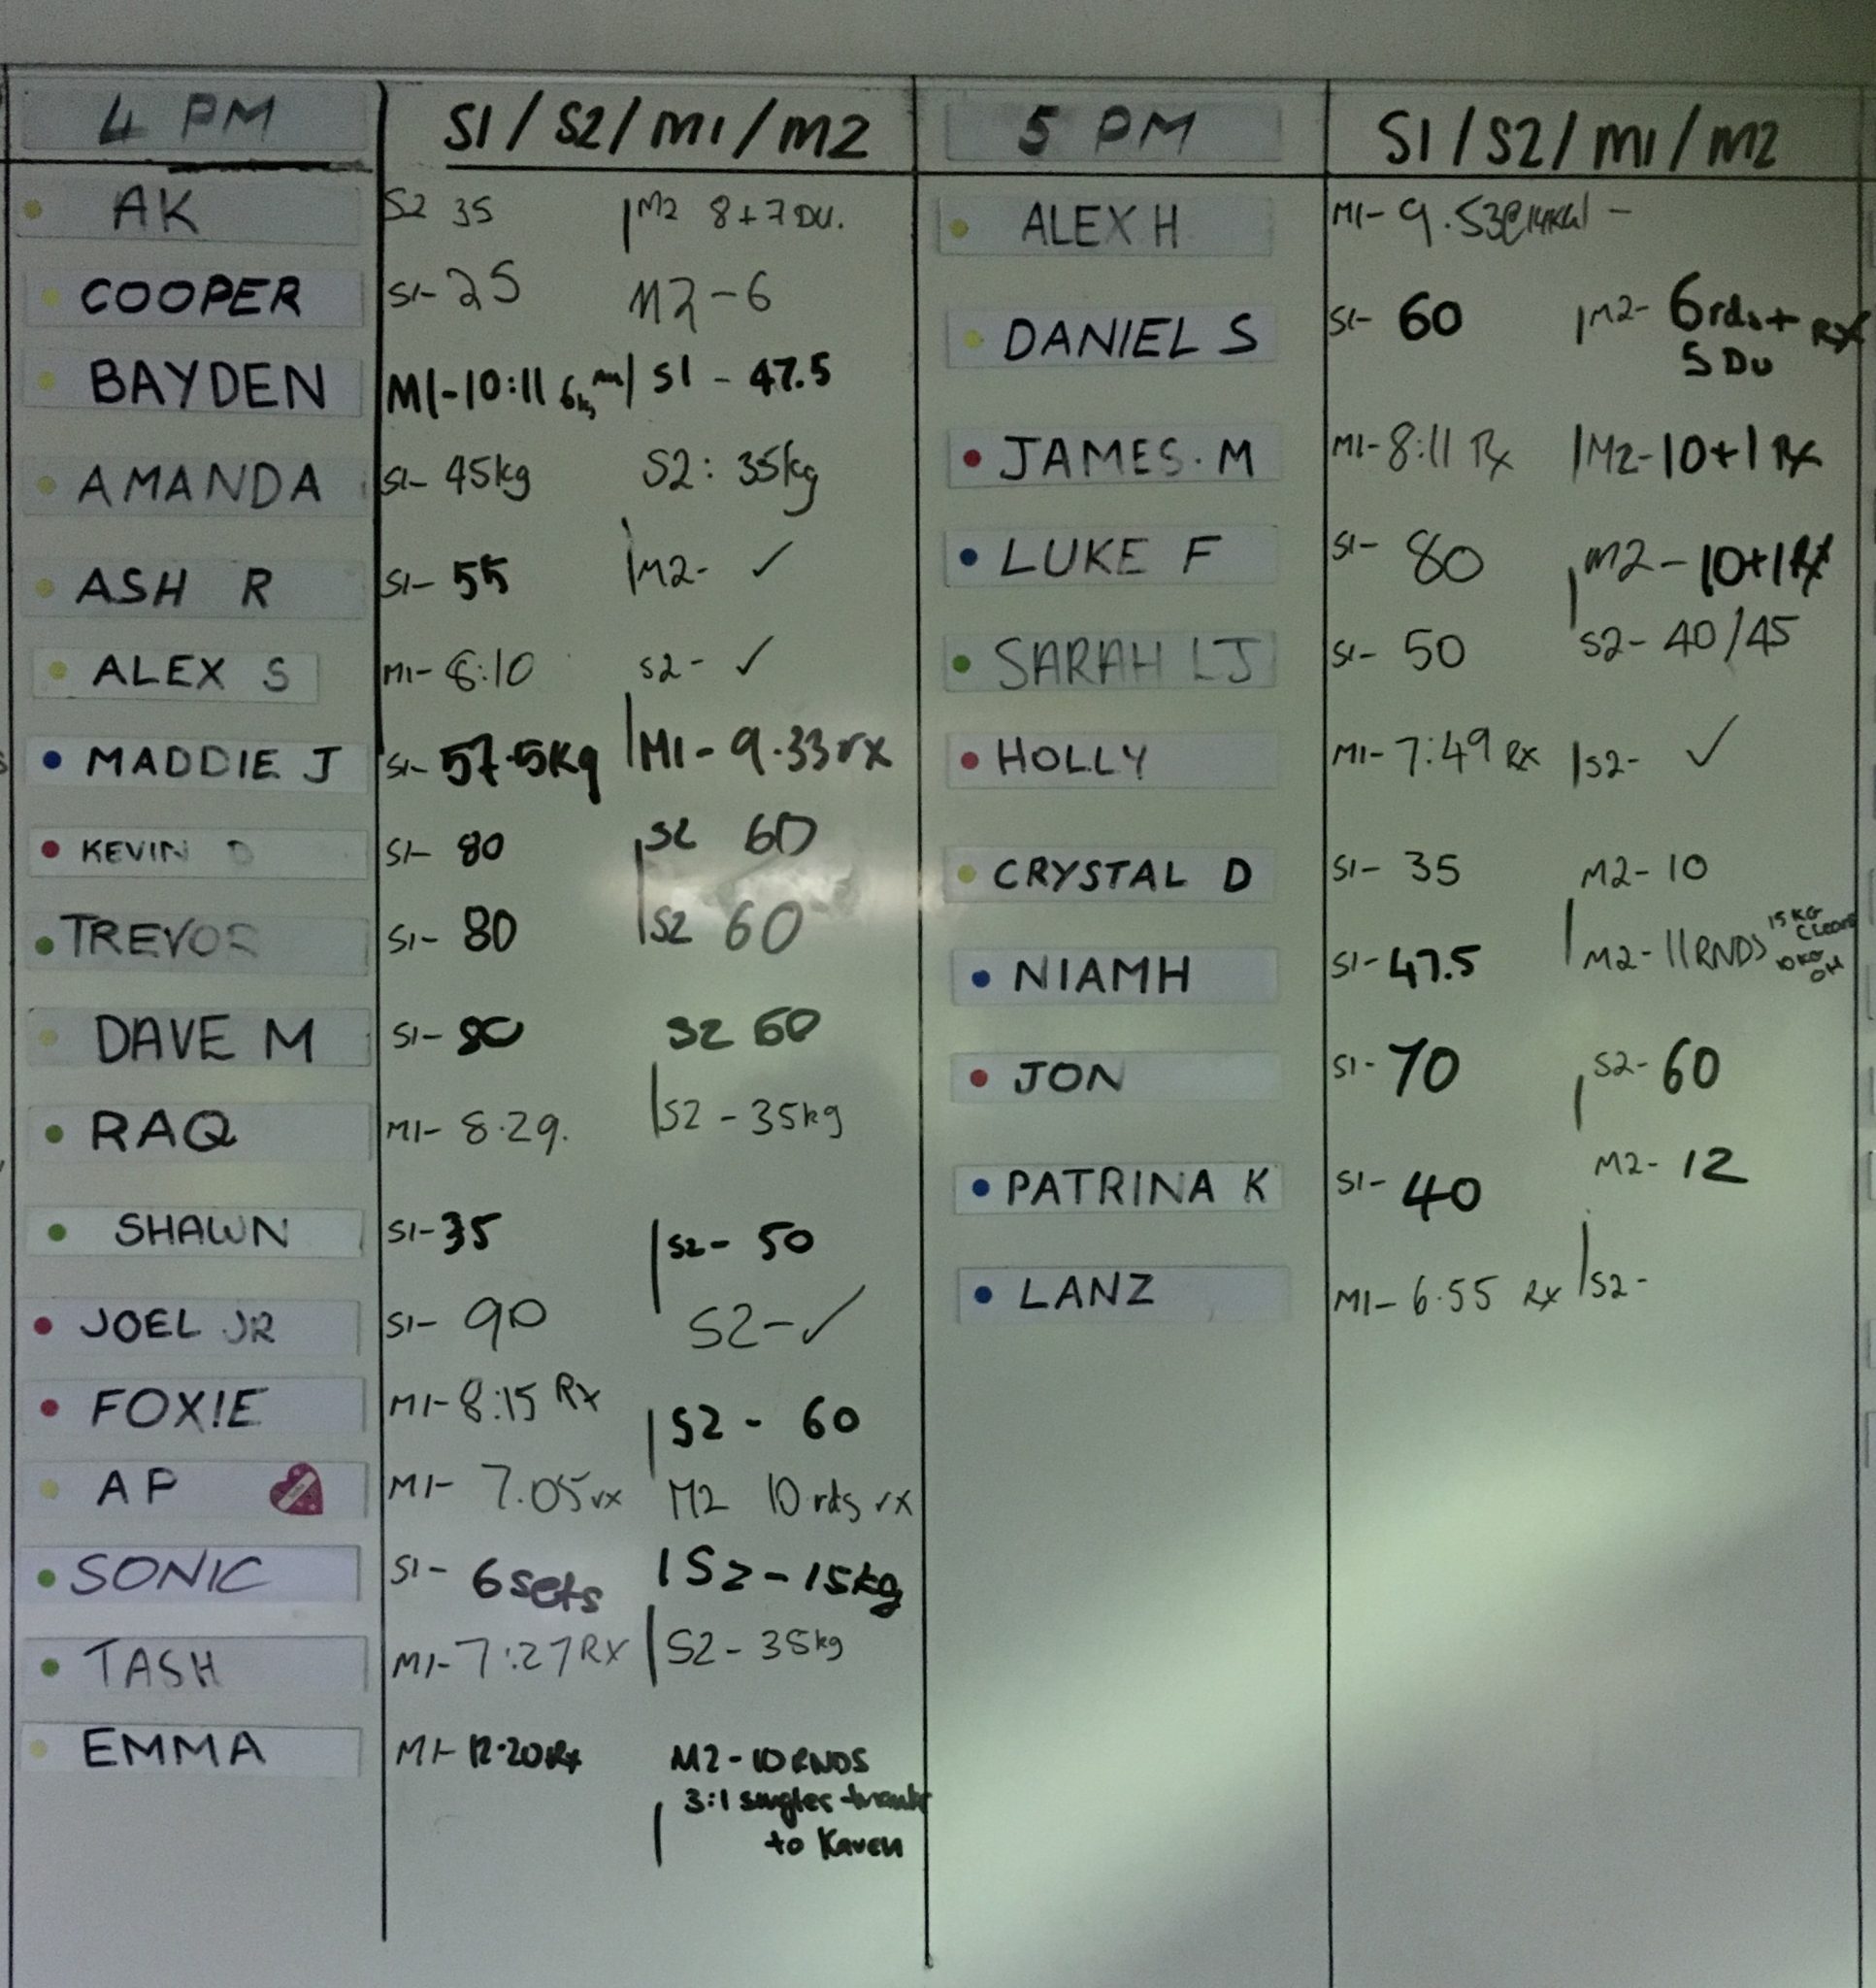 4 PM S1/S2/M1/M2
AK S2 35 | M2 8+7 DU.
COOPER S1- 25 M2-6
BAYDEN M1-10:11 6kg | S1 - 47.5
AMANDA S1- 45kg S2: 35kg
ASH R S1- 55 | M2- ✓
ALEX S M1- 8:10 S2- ✓
MADDIE J S1- 57.5Kg | M1- 9.33 rx
KEVIN D S1- 80 | S2 60
TREVOR S1- 80 | S2 60
DAVE M S1- 80 S2 60
RAQ M1- 8.29. | S2 - 35kg
SHAWN S1- 35 | S2- 50
JOEL JR S1- 90 S2-✓
FOXIE M1- 8:15 Rx | S2 - 60
AP M1- 7.05 rx M2 10 rds rx
SONIC S1- 6 sets | S2-15kg
TASH M1- 7:27 RX | S2- 35kg
EMMA M1- 12.20 Rx M2-10 RNDS
3:1 singles thanks
to Karen
5 PM S1/S2/M1/M2
ALEX H M1- 9.53@14KG | -
DANIEL S S1- 60 | M2- 6rds+ RX
5 DU
JAMES.M M1- 8:11 Rx | M2-10+1 Rx
LUKE F S1- 80 | M2-10+1 Rx
SARAH LJ S1- 50 S2- 40/45
HOLLY M1- 7:49 Rx | S2- ✓
CRYSTAL D S1- 35 M2- 10
NIAMH S1- 47.5 | M2-11 RNDS 15 KG
CLeans
10KG
OH
JON S1- 70 | S2- 60
PATRINA K S1- 40 M2- 12
LANZ M1- 6.55 Rx | S2-